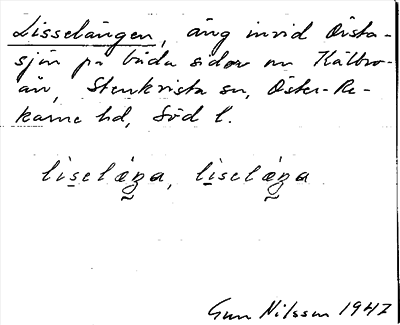 Lisselängen, äng invid Örsta-
sjön på båda sidor om Kälbro-
ån, Stenkvista sn, Öster-Re-
karne hd, Söd l.
liselæŋa, liselæŋa
Gun Nilsson 1947